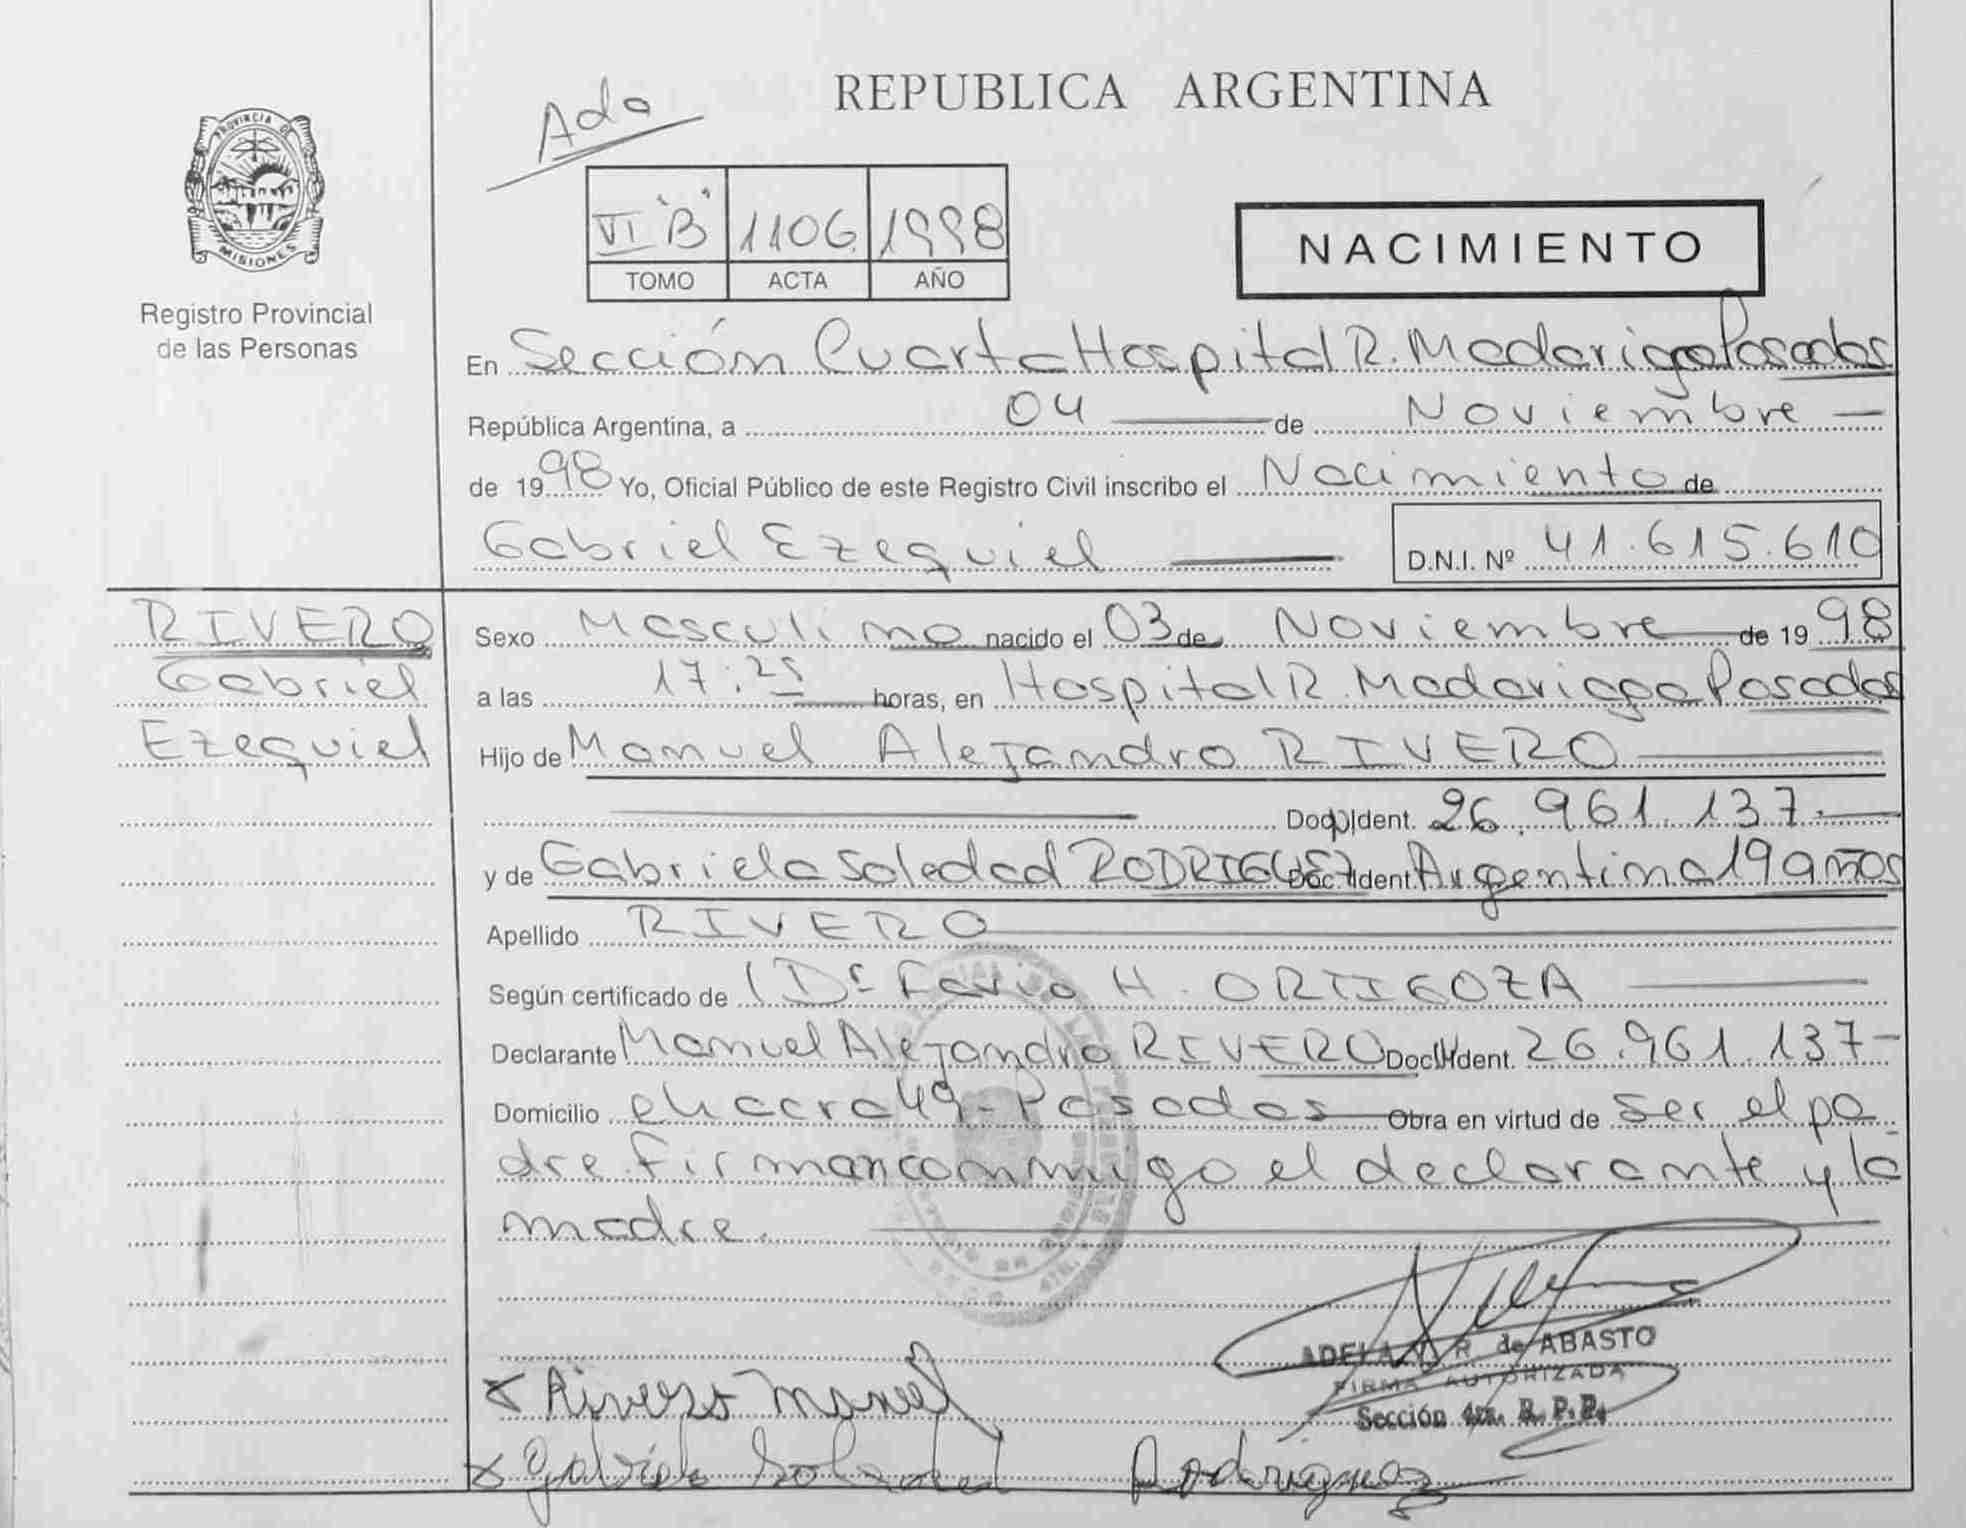 REPUBLICA ARGENTINA
Ada
PROVINCIA DE
MISIONES
Registro Provincial
de las Personas
VI "B" 1106 1998
TOMO ACTA AÑO
NACIMIENTO
En Sección Cuarta Hospital R. Madariaga Posadas
República Argentina, a 04 de Noviembre
de 1998 Yo, Oficial Público de este Registro Civil inscribo el Nacimiento de
Gabriel Ezequiel D.N.I. Nº 41.615.610
RIVERO
Gabriel
Ezequiel
Sexo Masculino nacido el 03 de Noviembre de 1998
a las 17:25 horas, en Hospital R. Madariaga Posadas
Hijo de Manuel Alejandro RIVERO
Doc. Ident. 26.961.137.
y de Gabriela Soledad RODRIGUEZ Doc. Ident. Argentina 19 años
Apellido RIVERO
Según certificado de Dr Favio H. ORTIGOZA
Declarante Manuel Alejandro RIVERO Doc. Ident. 26.961.137
Domicilio chacra 49 - Posadas Obra en virtud de ser el pa
dre. Firman conmigo el declarante y la
madre.
ADELA R. de ABASTO
FIRMA AUTORIZADA
Sección 4ta. R. P. P.
x Rivero Manuel
x Gabriela Soledad Rodriguez